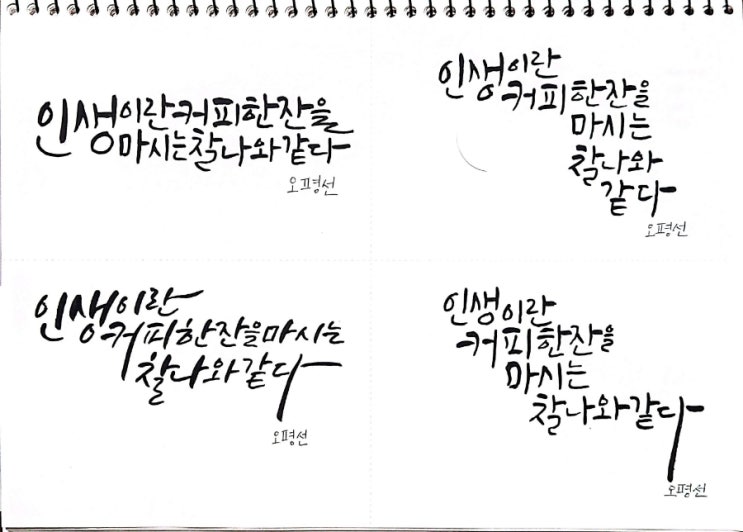 인생이란커피한잔을
마시는찰나와같다
오평선
인생이란
커피한잔을
마시는
찰나와
같다
오평선
인생이란
커피한잔을마시는
찰나와같다
오평선
인생이란
커피한잔을
마시는
찰나와같다
오평선